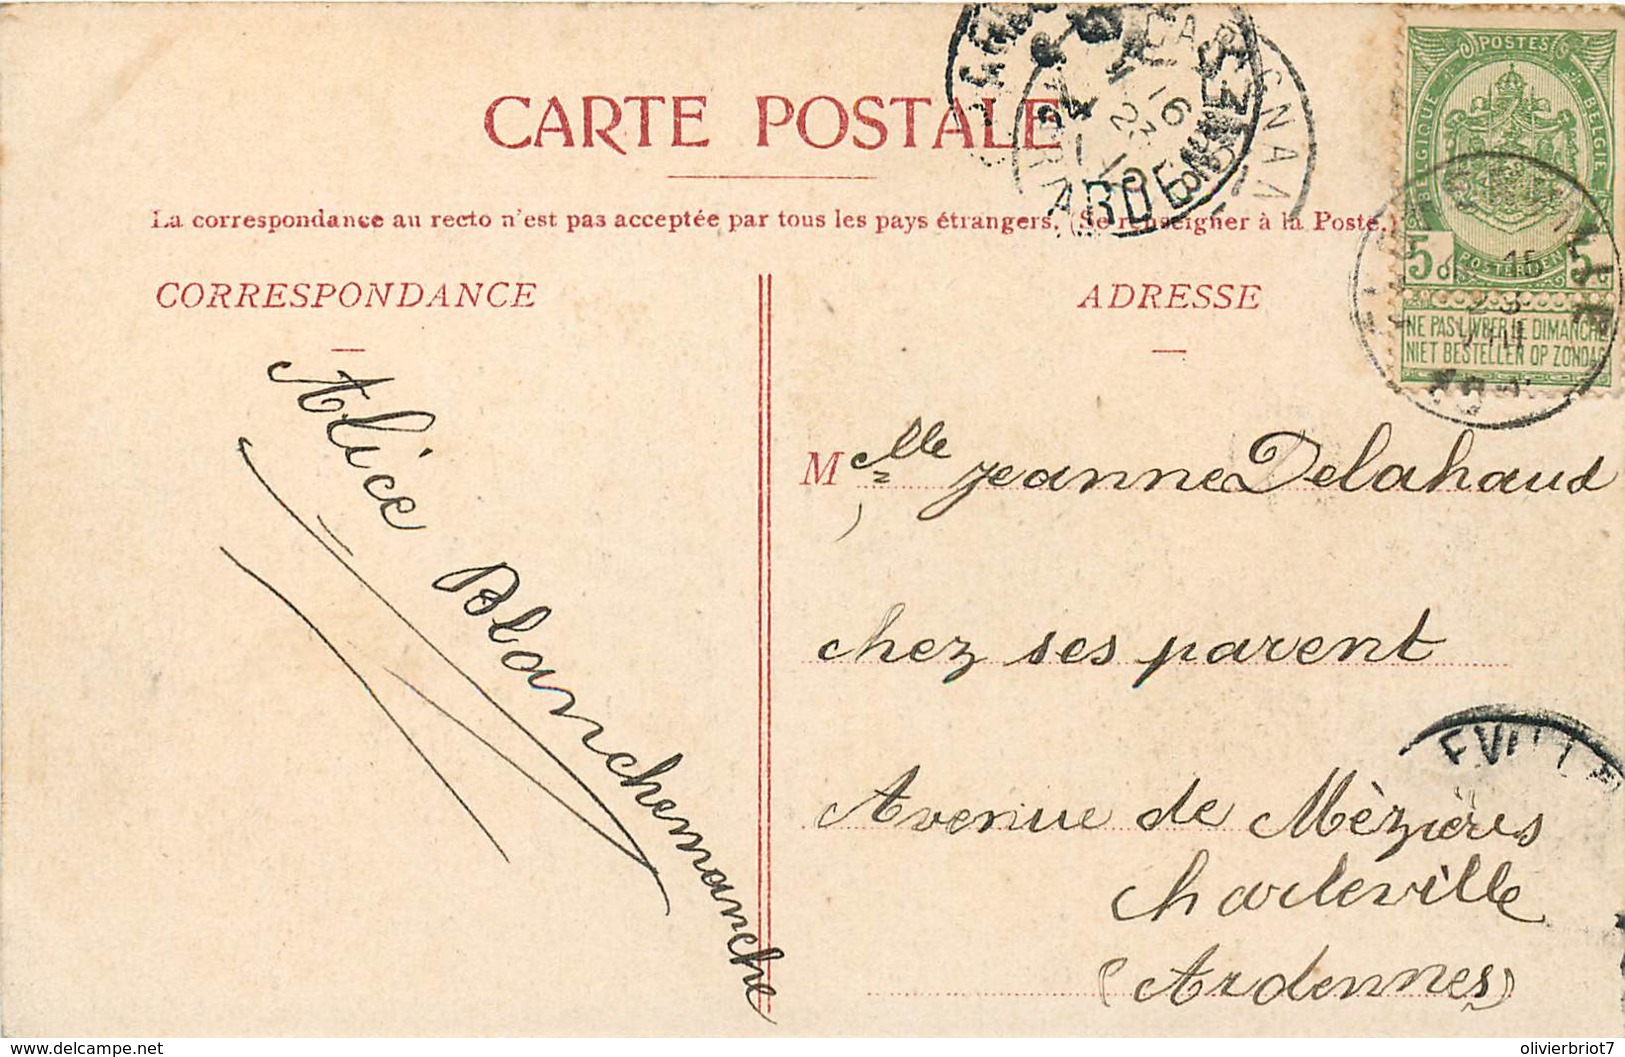 CARTE POSTALE
La correspondance au recto n'est pas acceptée par tous les pays étrangers. (Se renseigner à la Poste.)
CORRESPONDANCE
ADRESSE
POSTES
BELGIQUE
BELGIE
5
5
POSTERIJEN
NE PAS LIVRER LE DIMANCHE
NIET BESTELLEN OP ZONDAG
15
23
VIII
CARIGNAN
16
23
ARDENNES
EVILLE
Alice Blanchemanche
Melle Jeanne Delahaud
chez ses parent
Avenue de Mézières
Charleville
(Ardennes)
delcampe.net
olivierbriot7